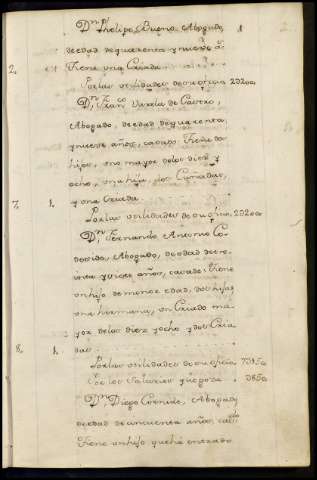 Dn. Phelipe Bueno Abogado,
de edad de quarenta y nueve a.s
2. Tiene una Criada
Por las utilidades de su oficio 2920
Dn. Fran.co Varela de Castro,
Abogado, de edad de quarenta
y nueve años, casado. Tiene
hijos, uno mayor de los diez y
ocho, una hija, dos Cuñadas,
y una Criada
7. h.
Por las utilidades de su oficio, 2920
Dn. Fernando Antonio
Abogado, de edad de
y años, casado. Tiene
un hijo de menor edad, dos hijas
una hermana, un Criado ma
yor de los diez y ocho y dos Cria
8. h. das
Por las utilidades de su oficio
Por los Salarios que goza
Dn. Diego Cornide, Abogado
de edad de cincuenta años, cas.do
Tiene un hijo que ha entrado